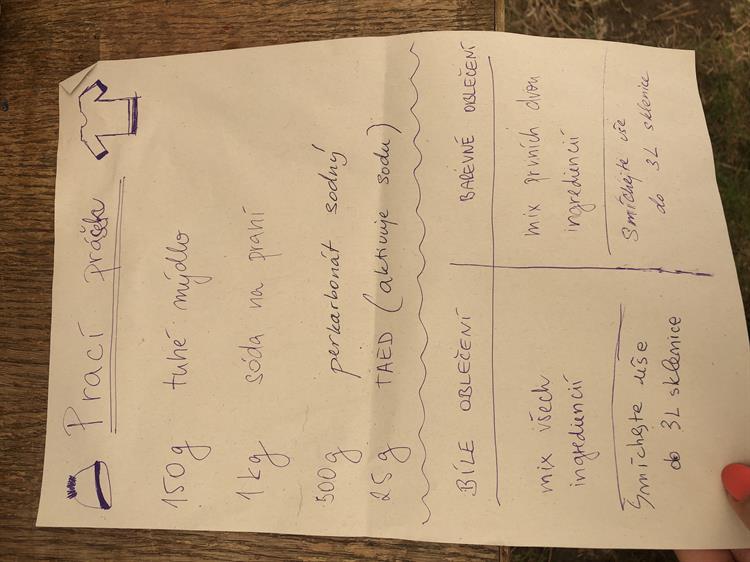 Prací prášek
150g tuhé mýdlo
1kg sóda na praní
500g perkarbonát sodný
25g TAED (aktivuje sodu)
BÍLE OBLEČENÍ
mix všech
ingrediencií
Smíchejte vše
do 3L sklenice
BAREVNE OBLEČENÍ
mix prvních dvou
ingrediencií
Smíchejte vše
do 3L sklenice